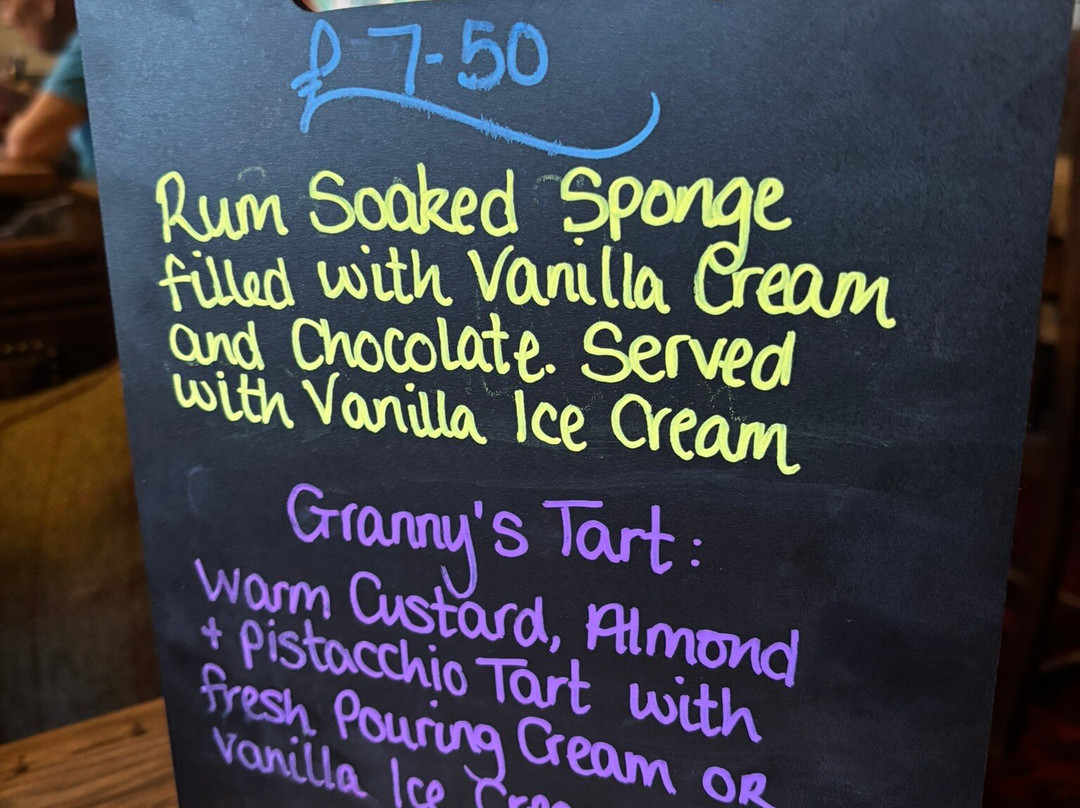 £7-50
Rum Soaked Sponge
filled with Vanilla Cream
and Chocolate. Served
with Vanilla Ice Cream
Granny's Tart:
Warm Custard, Almond
+ Pistacchio Tart with
fresh Pouring Cream OR
Vanilla Ice